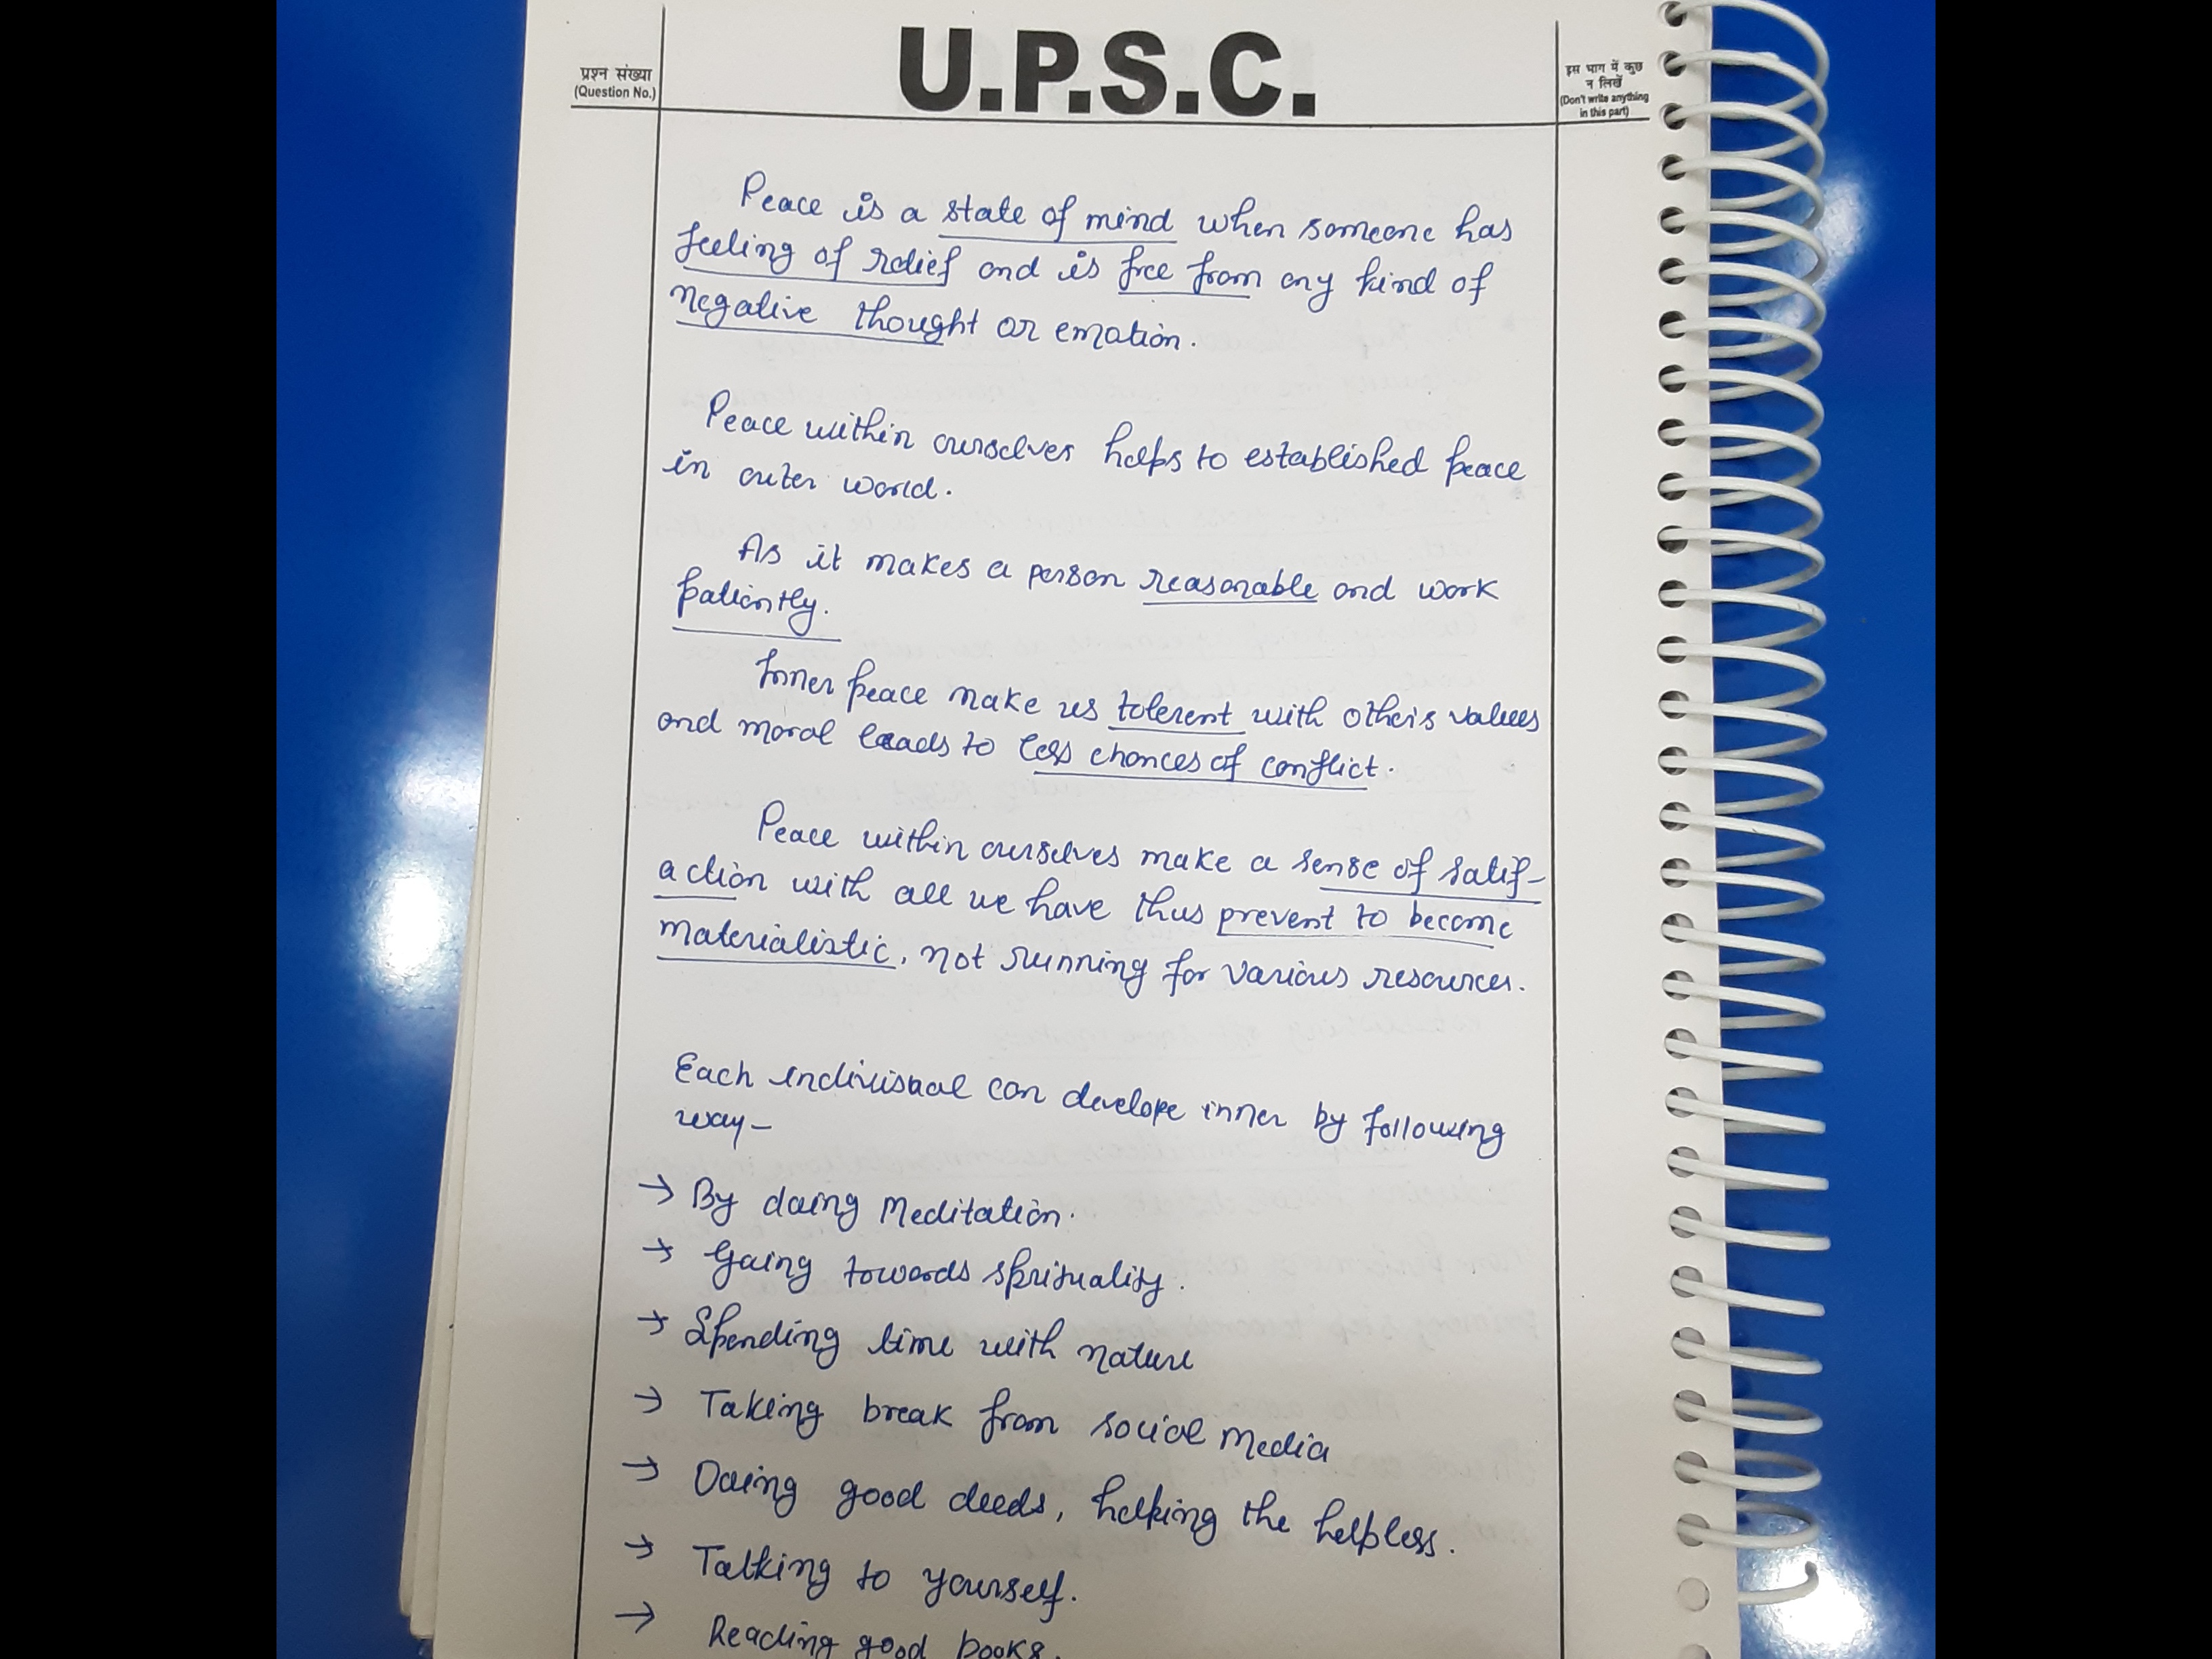 U.P.S.C.
प्रश्न संख्या
(Question No.)
इस भाग में कुछ
न लिखें
(Don't write anything
in this part)
Peace is a state of mind when someone has
feeling of relief and is free from any kind of
negative thought or emotion.
Peace within ourselves helps to established peace
in outer world.
As it makes a person reasonable and work
patiently.
Inner peace make us tolerent with other's values
and moral leads to less chances of conflict.
Peace within ourselves make a sense of satif-
action with all we have thus prevent to become
materialistic, not running for various resources.
Each indivisual can develope inner by following
way-
→ By doing Meditation.
→ Going towards sprituality.
→ Spending time with nature
→ Taking break from social media
→ Doing good deeds, helping the helpless.
→ Talking to yourself.
→ Reading good books.